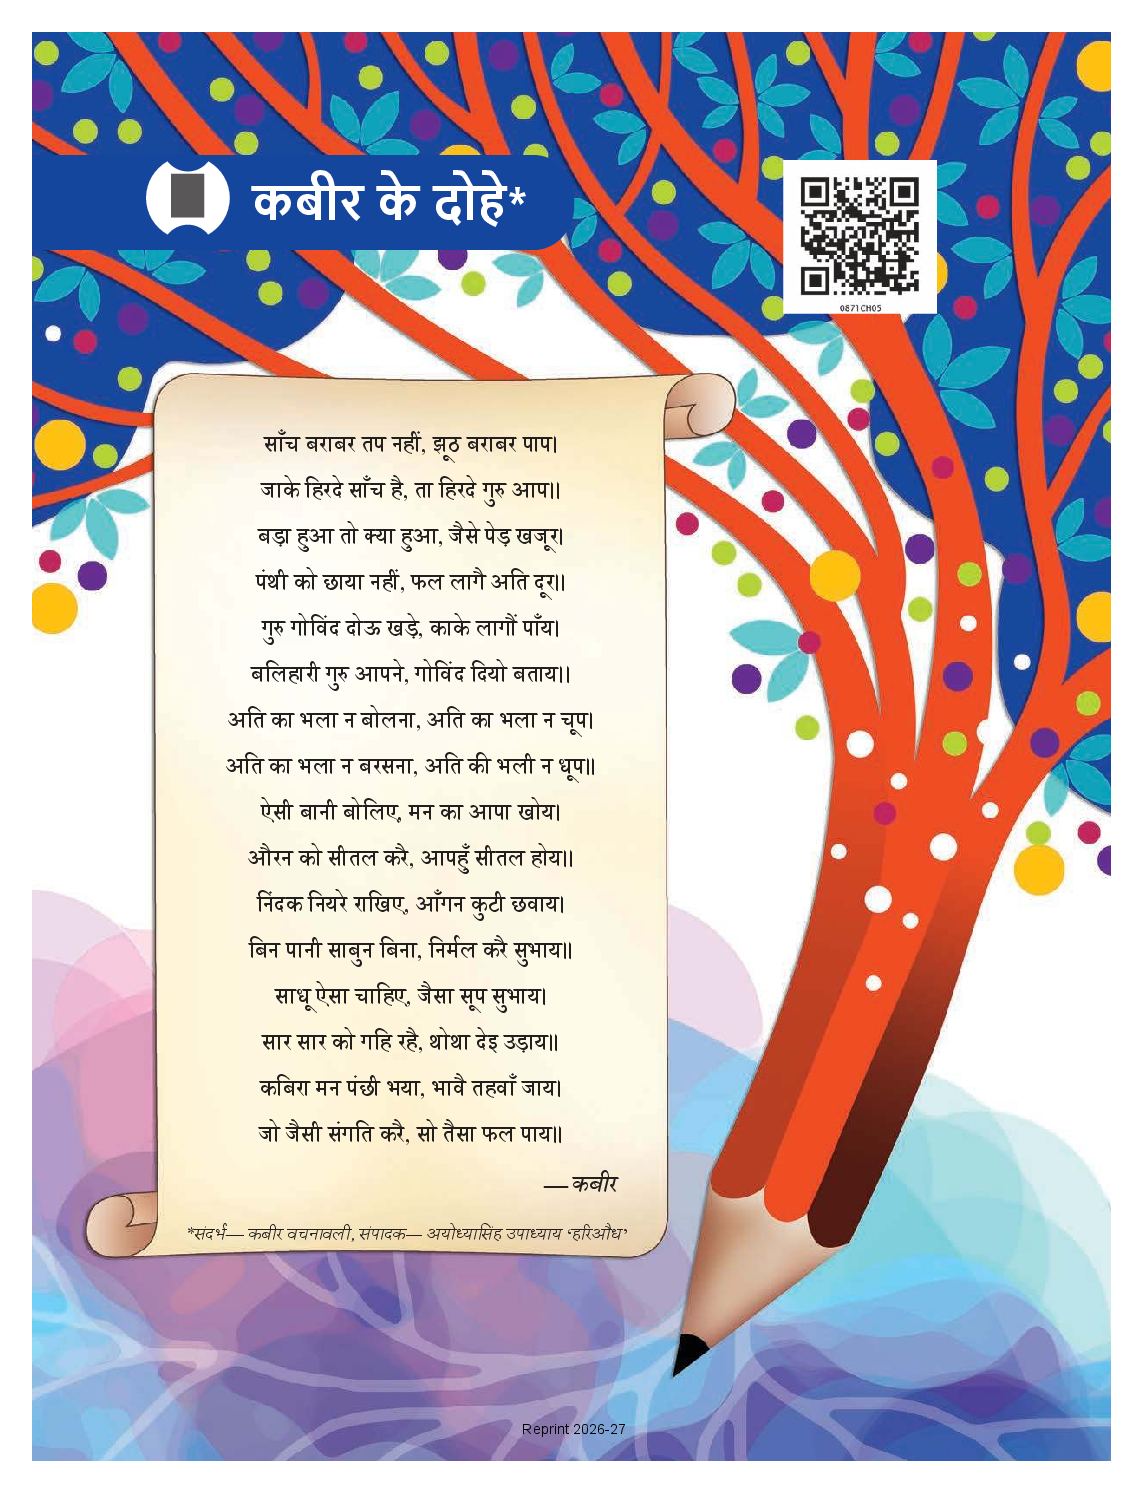 कबीर के दोहे*
0871CH05
साँच बराबर तप नहीं, झूठ बराबर पाप।
जाके हिरदे साँच है, ता हिरदे गुरु आप॥
बड़ा हुआ तो क्या हुआ, जैसे पेड़ खजूर।
पंथी को छाया नहीं, फल लागै अति दूर॥
गुरु गोविंद दोऊ खड़े, काके लागौं पाँय।
बलिहारी गुरु आपने, गोविंद दियो बताय॥
अति का भला न बोलना, अति का भला न चूप।
अति का भला न बरसना, अति की भली न धूप॥
ऐसी बानी बोलिए, मन का आपा खोय।
औरन को सीतल करै, आपहुँ सीतल होय॥
निंदक नियरे राखिए, आँगन कुटी छवाय।
बिन पानी साबुन बिना, निर्मल करै सुभाय॥
साधू ऐसा चाहिए, जैसा सूप सुभाय।
सार सार को गहि रहै, थोथा देइ उड़ाय॥
कबिरा मन पंछी भया, भावै तहवाँ जाय।
जो जैसी संगति करै, सो तैसा फल पाय॥
—कबीर
*संदर्भ— कबीर वचनावली, संपादक— अयोध्यासिंह उपाध्याय ‘हरिऔध’
Reprint 2026-27